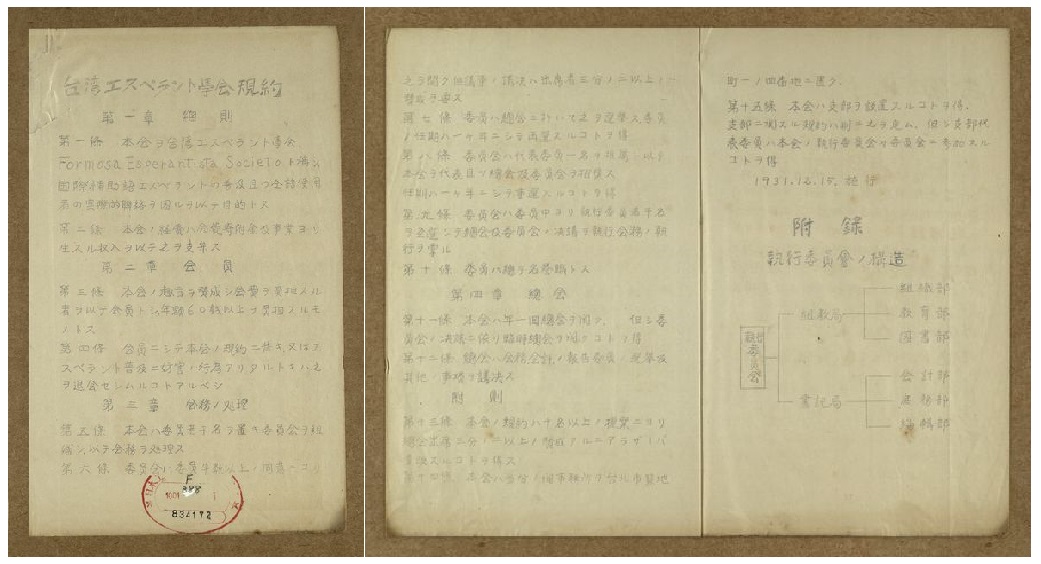 台湾エスペラント學会規約
第一章 總則
第一條 本会ヲ台湾エスペラント學会
Formosa Esperantista Societo ト稱シ
国際補助語エスペラントノ普及且ツ
者ノ実際的聯絡ヲ図ルヲ以テ目的トス
第二條 本会ノ経費ハ会費寄附金及事業ヨリ
生スル収入ヲ以テ之ヲ支弁ス
第二章 会員
第三條 本会ノ趣旨ヲ賛成シ会費ヲ負担スル
者ヲ以テ会員トシ年額60銭以上ヲ負担スルモ
ノトス
第四條 会員ニシテ本会ノ規約ニ 又ハエ
スペラント普及ニ妨害ノ行為アリアルトキハ之
ヲ退会セシムルコトアルベシ
第三章 会務ノ処理
第五條 本会ハ委員若干名ヲ置キ委員会ヲ組
織シ以テ会務ヲ処理ス
第六條 委員会ハ委員半数以上ノ同意ニヨリ
F
888
1001
834172
之ヲ開ク但議事ノ議決ハ出席者三分ノ二以上ノ
賛成ヲ要ス
第七條 委員ハ總会ニ於いて之ヲ選挙ス委員
ノ任期ハ一ヶ年ニシテ再選スルコトヲ得
第八條 委員会ハ代表委員一名ヲ推薦シ以テ
本会ヲ代表且ツ總会及委員会ヲ招集ス
任期ハ一ヶ年ニシテ重選スルコトヲ得
第九條 委員会ハ委員中ヨリ執行委員若干名
ヲ シテ總会及委員会ノ決議ヲ執行会務ノ執
行ヲ掌ル
第十條 委員ハ總テ名誉職トス
第四章 總会
第十一條 本会ハ年一回總会ヲ開ク、 但シ委
員会ノ決議ニ依リ臨時總会ヲ開クコトヲ得
第十二條 總会ハ会務会計ノ報告委員ノ 
其他ノ事務ヲ議決ス
附則
第十三條 本会ノ規約ハ十名以上ノ提案ニヨリ
總会出席三分ノ二以上ノ賛成アルニアラザレバ
変更スルコトヲ得ス
第十四條 本会ハ当分ノ間事務所ヲ台北市
町一ノ四番地ニ置ク、
第十五條 本会ハ支部ヲ設置スルコトヲ得、
支部ニ関スル規約ハ別ニ之ヲ定ム、但シ支部代
表委員ハ本会ノ執行委員会及委員会ニ参加スル
コトヲ得
1931.12.15. 施行
附錄
執行委員會ノ構造
執行委員会
組教局
組織部
教育部
図書部
書記局
会計部
庶務部
編輯部